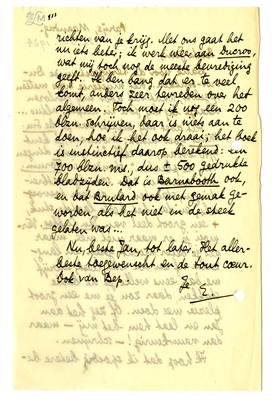 richten van je krijg. Met ons gaat het
nu iets beter; ik werk weer aan Ducroo,
wat mij toch nog de meeste bevrediging
geeft. Ik ben bang dat er te veel
komt, anders zeer tevreden over het
algemeen. Toch moet ik nog een 200
blzn. schrijven, daar is niets aan te
doen, hoe ik het ook draai; het boek
is instinctief daarop berekend: een
700 blzn. ms., dus ± 500 gedrukte
bladzijden. Dat is Barnabooth ook,
en dat Brulard ook met gemak ge-
worden, als het niet in de steek
gelaten was...
Nu, beste Jan, tot later. Het aller-
beste toegewenscht en de tout cœur.
Ook van Bep.
Je E.